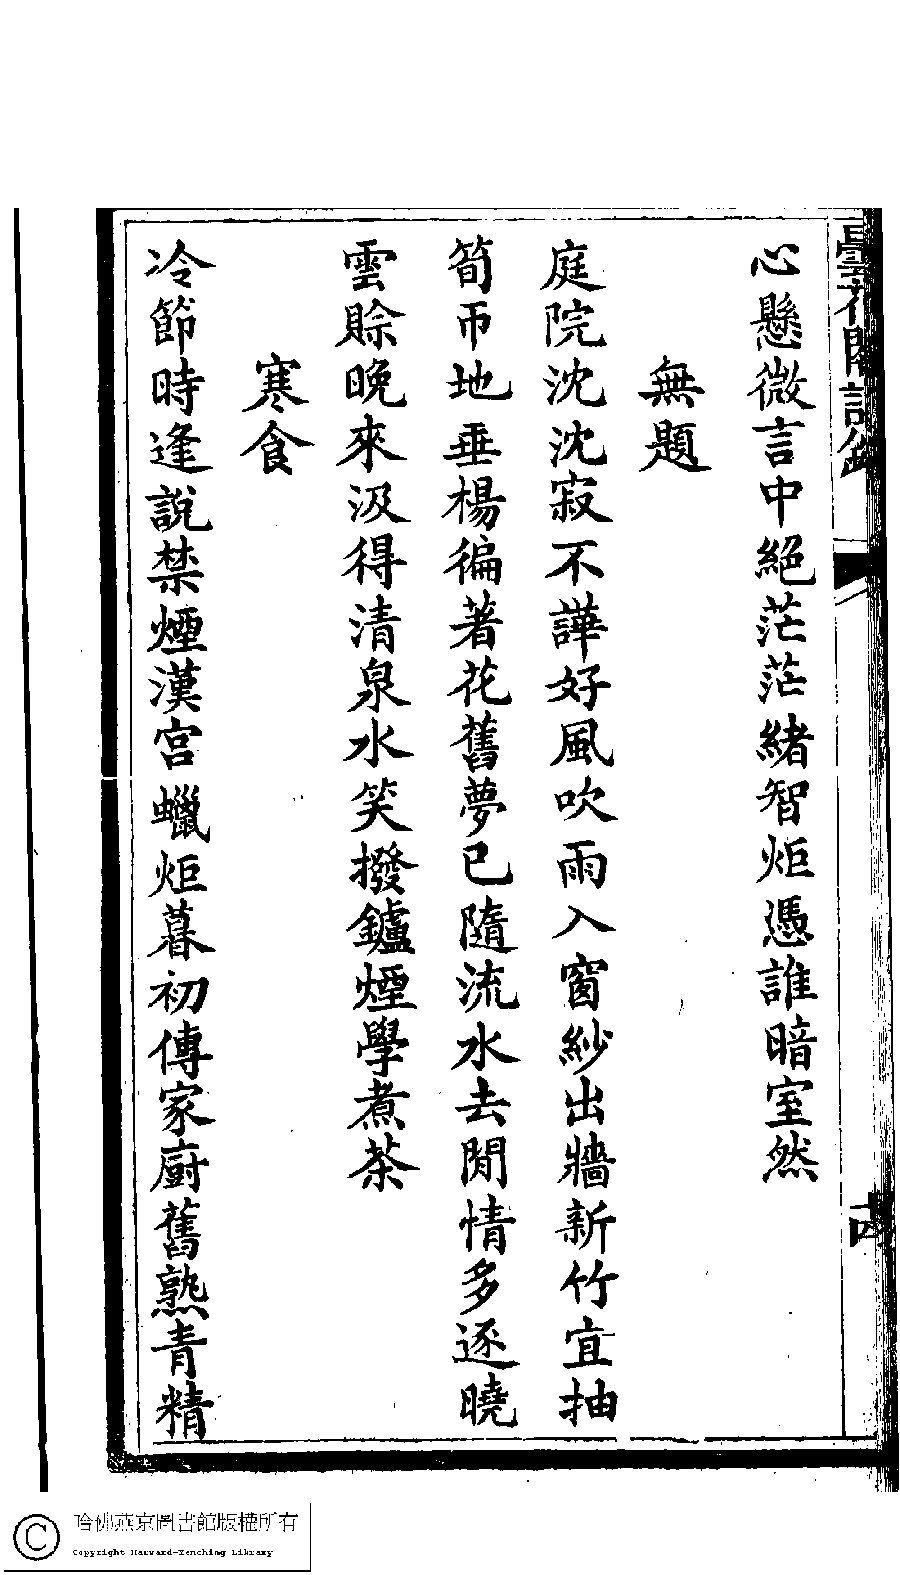 曇花閣詩鈔
心懸微言中絕茫茫緒智炬憑誰暗室然
無題
庭院沈沈寂不譁好風吹雨入窗紗出牆新竹宜抽
筍帀地垂楊徧著花舊夢已隨流水去閒情多逐曉
雲賒晚來汲得清泉水笑撥鑪煙學煮茶
寒食
冷節時逢說禁煙漢宮蠟炬暮初傳家廚舊熟青精
哈佛燕京圖書館版權所有
Copyright Harvard-Yenching Library